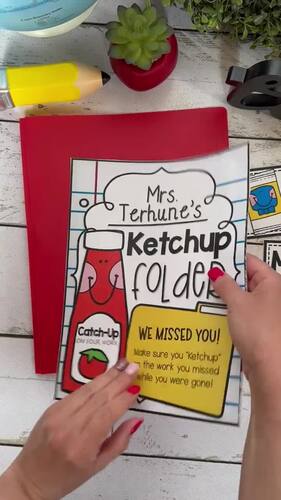 Mrs.
Terhune's
Ketchup
folder
Catch-Up
ON YOUR WORK
WE MISSED YOU!
Make sure you "Ketchup"
on the work you missed
while you were gone!